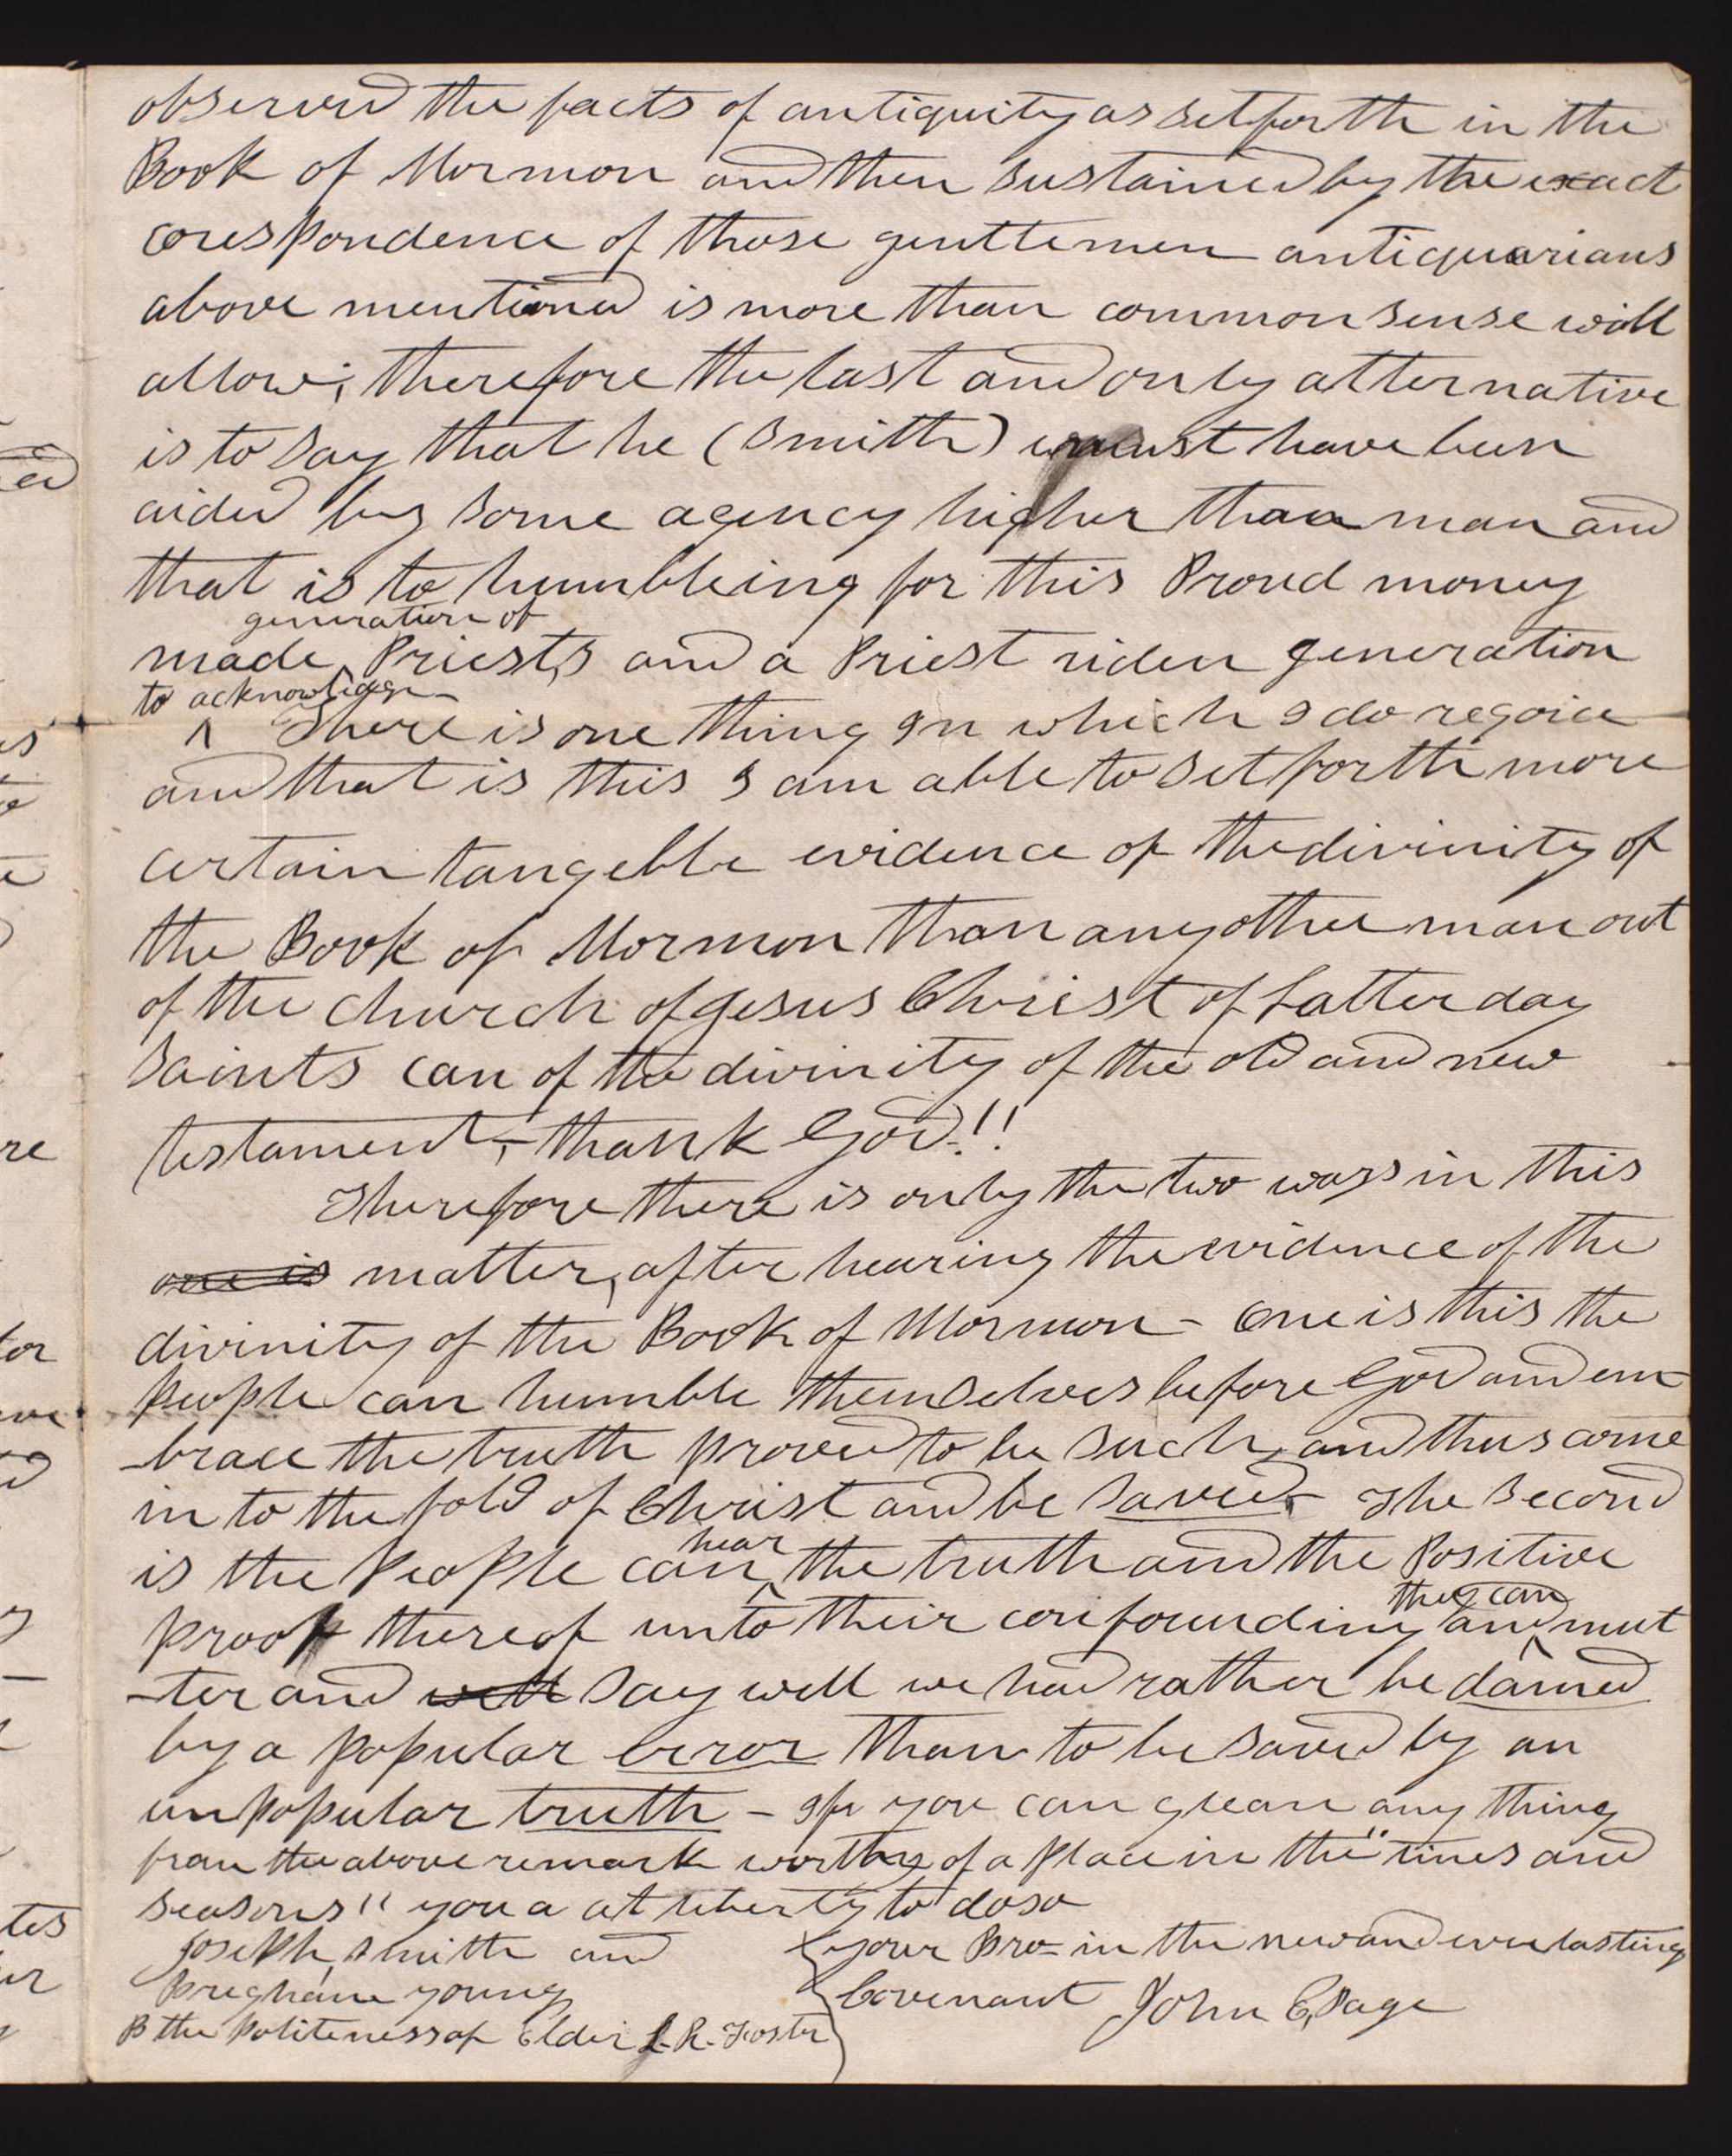 observed the facts of antiquity as set forth in the
Book of Mormon and then sustained by the exact
corespondence of those genttemen antiquarians
above mentioned is more than common sense will
allow; therefore the last and only alternative
is to say that he (Smith) must have been
aided by some agency higher than man and
that is to humbleing for this Proud money
generation of
made Priests and a Priest riden generation
to acknowledge
^ There is one thing In which I do rejoice
and that is this I am able to set forth more
certain tangeble evidence of the divinity of
the Book of Mormon than any other man out
of the church of Jesus Christ of Latter day
Saints can of the divinity of the old and new
testament;– thank God!!
Therefore there is only the two ways in this
one is matter, after hearing the evidence of the
divinity of the Book of Mormon – One is this the
People can humble themselves before God and em-
-brace the truth proved to be such, and thus come
in to the fold of Christ and be saved – The second
hear
is the People can ^ the truth and the Positive
they can
proof thereof unto their confounding and ^ mut
-ter and will say well we had rather be damed
by a popular error than to be saved by an
unpopular truth – If you can glean any thing
from the above remark worthy of a Place in the "times and
seasons" you a at liberty to do so
Joseph Smith and
Bregham young
B the Politeness of Elder L. R. Foster
your Bro- in the new and everlasting
Covenant John E, Page